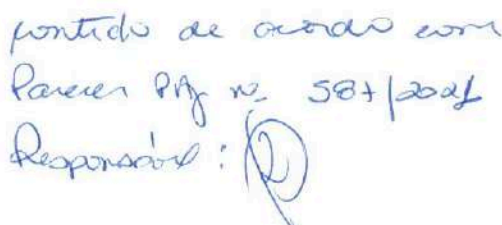 contido de acordo com
Parecer PAJ nº 587/2021
Responsável: